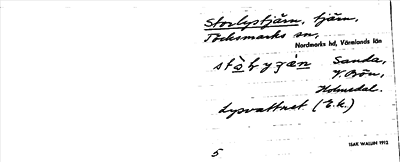 Storlystjärn, tjärn,
Töcksmarks sn,
Nordmarks hd, Värmlands län
Sanda,
V. Bön,
Holmedal.
Lysvattnet (E.k.)
ISAK WALLIN 1912
5